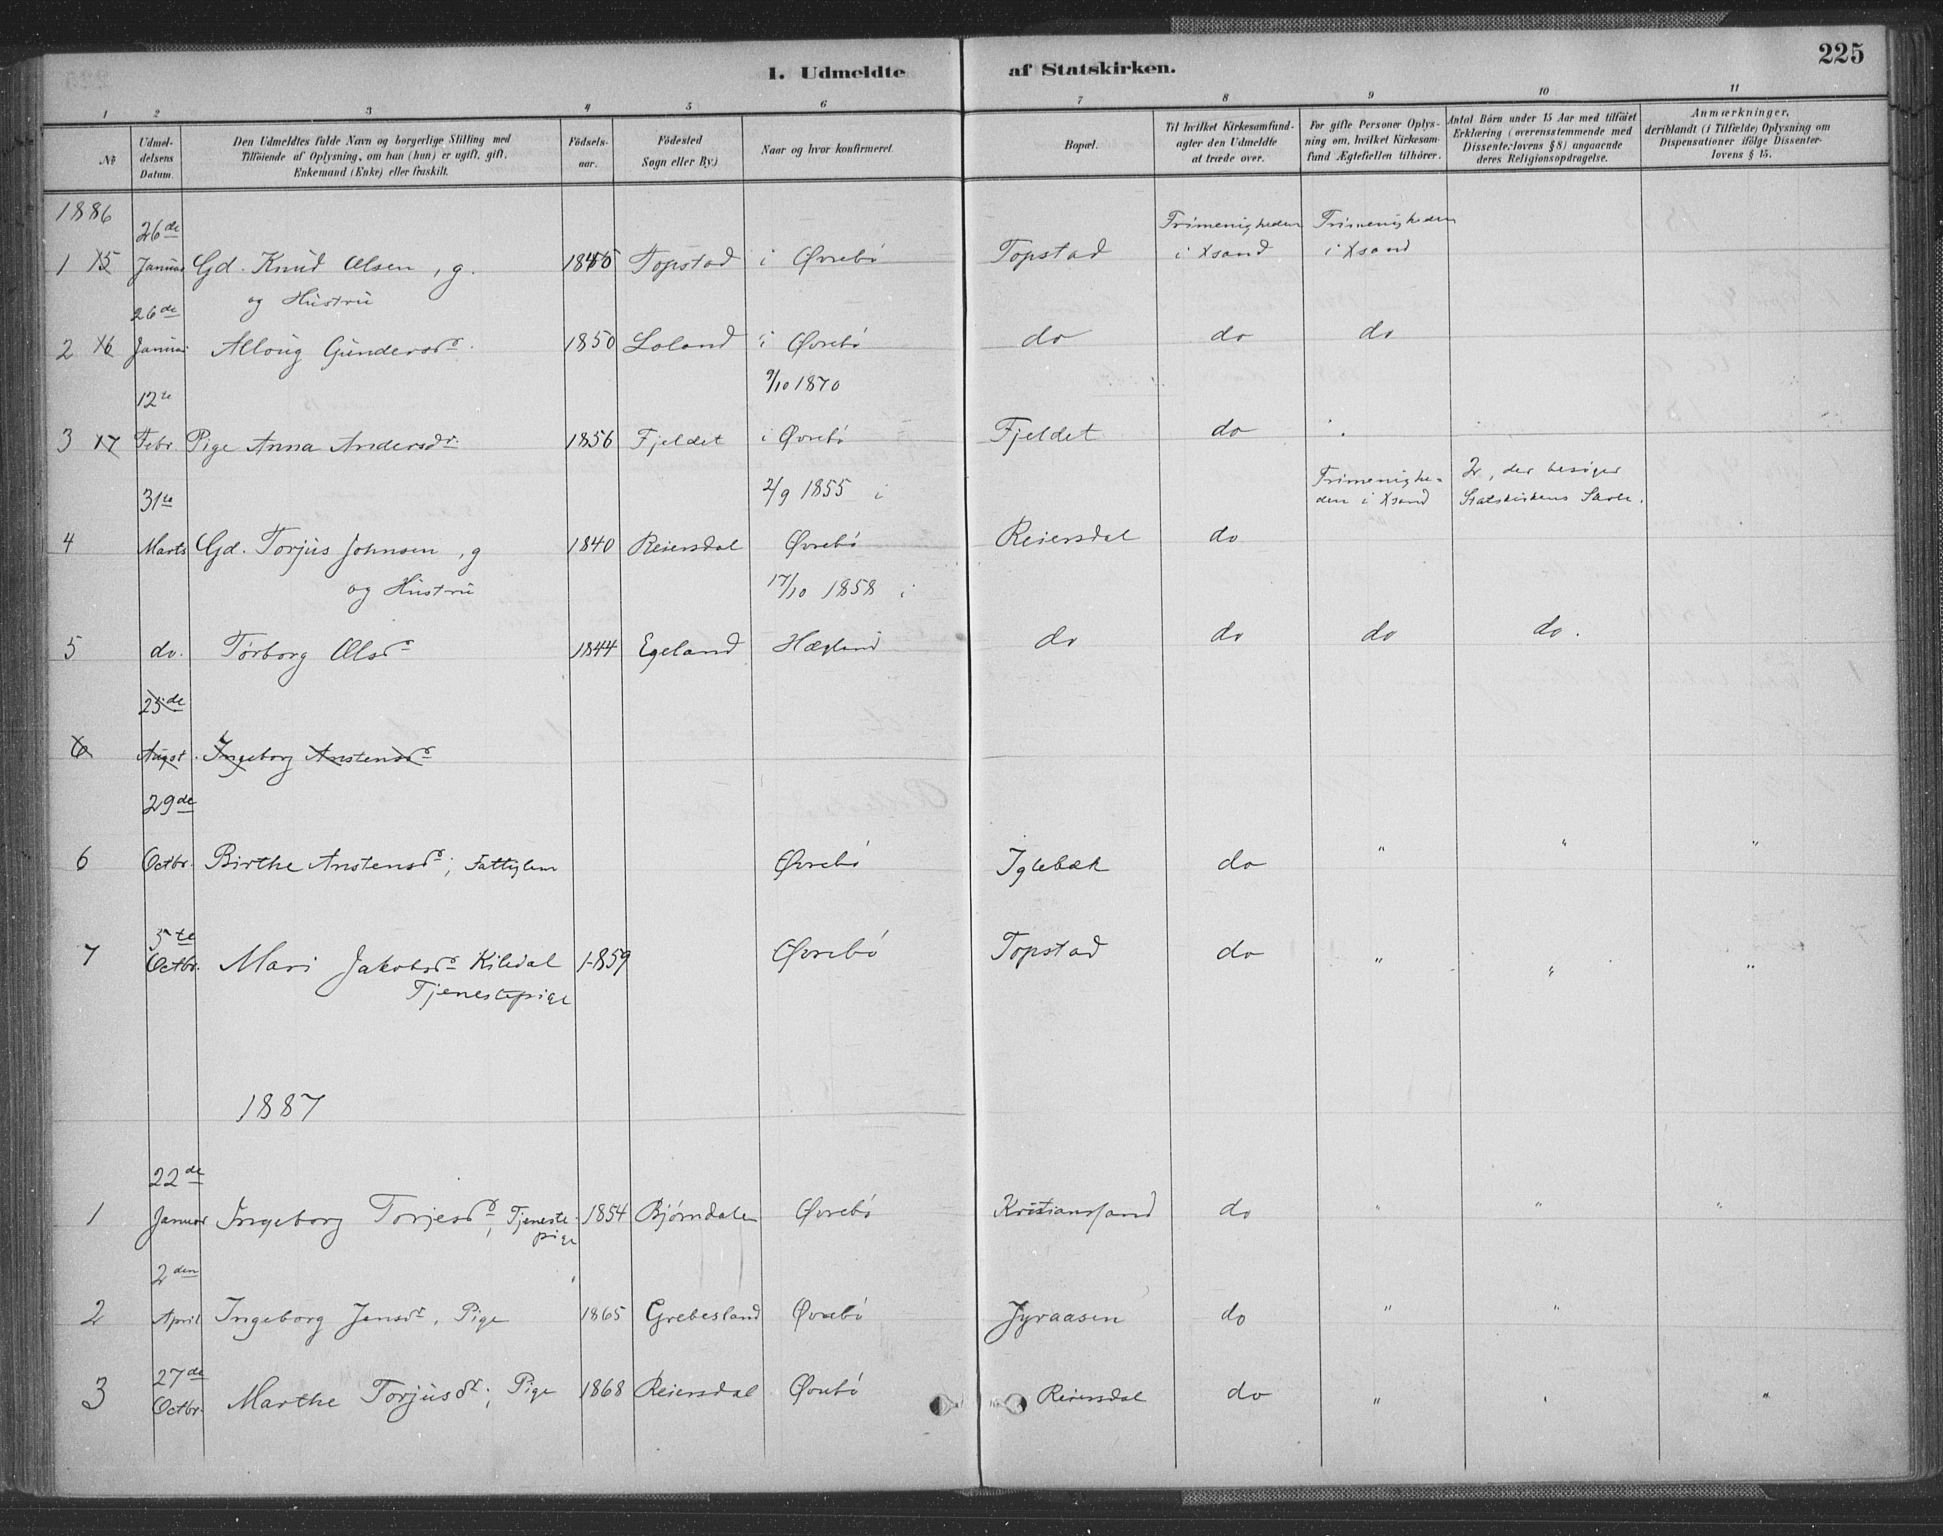 225
1. Udmeldte af Statskirken.
1 2 3 4 5 6 7 8 9 10 11
№
Udmel-
delsens
Datum.
Den Udmeldtes fulde Navn og borgerlige Stilling med
Tilføiende af Oplysning, om han (hun) er ugift, gift,
Enkemand (Enke) eller fraskilt.
Fødsels-
aar.
Fødested
Sogn eller By.)
Naar og hvor konfirmeret.
Bopæl.
Til hvilket Kirkesamfund-
agter den Udmeldte
at træde over.
For gifte Personer Oplys-
ning om, hvilket Kirkesam-
fund Ægtefællen tilhører.
Antal Börn under 15 Aar med tilføiet
Erklæring (overensstemmende med
Dissenterlovens § 8) angaaende
deres Religionsopdragelse.
Anmærkninger,
deriblandt (i Tilfælde) Oplysning om
Dispensationer ifölge Dissenter-
lovens § 15.
1886
26de Frimenigheden Frimenigheden
1 15 Januar Gd. Knud Olsen, g. 1845 Topstad i Øvrebø Topstad i Xsand i Xsand
og Hustru
26de
2 16 Januar Alloug Gundersdr. 1850 Loland i Øvrebø do do do
9/10 1870
12te
3 17 Febr. Pige Anna Andersdr. 1856 Fjeldet i Øvrebø Fjeldet do
31te 2/9 1855 i Frimenighe- 2, der besøger
den i Xsand Statskirkens Skole.
4 Marts Gd. Torjus Johnsen, g 1840 Reiersdal Øvrebø Reiersdal do
og Hustru 17/10 1858 i
5 do. Torborg Olsdr 1844 Egeland Hægland do do do do.
25de
6 August. Ingeborg Anstensdr
29de
6 Octbr. Birthe Anstensdr; Fattiglem Øvrebø Iglebæk do " " "
5te
7 Octbr. Mari Jakobsdr Kiledal 1859 Øvrebø Topstad do " " "
Tjenestepige
1887
22de
1 Januar Ingeborg Torjesdr, Tjeneste- 1854 Bjørndalen Øvrebø Kristianssand do " " "
pige
2den
2 April Ingeborg Jensdr, Pige 1865 Grebesland Øvrebø Jyraasen do " " "
27de
3 Octbr. Marthe Torjusdr; Pige 1868 Reiersdal Øvrebø Reiersdal do " "